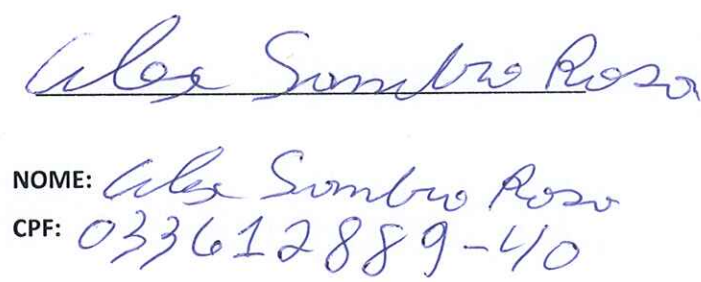 Alex Sombrio Rosa
NOME: Alex Sombrio Rosa
CPF: 033612889-40